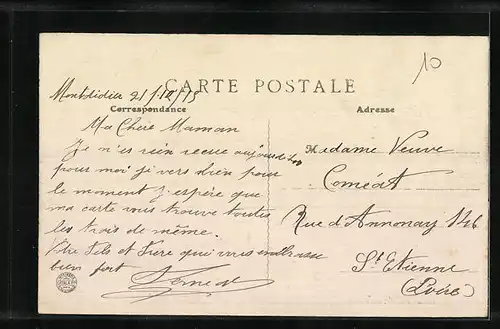 CARTE POSTALE
Montdidier 21
Correspondance
Adresse
Ma Chère Maman
Je n'es rien recue aujourd
pour moi je vers bien pour
le moment j'espère que
ma carte vous trouve toutes
les trois de même.
Votre fils et Frere qui vous embrasse
bien fort
Madame Veuve
Rue d'Annonay 146
St Etienne
(Loire)
10